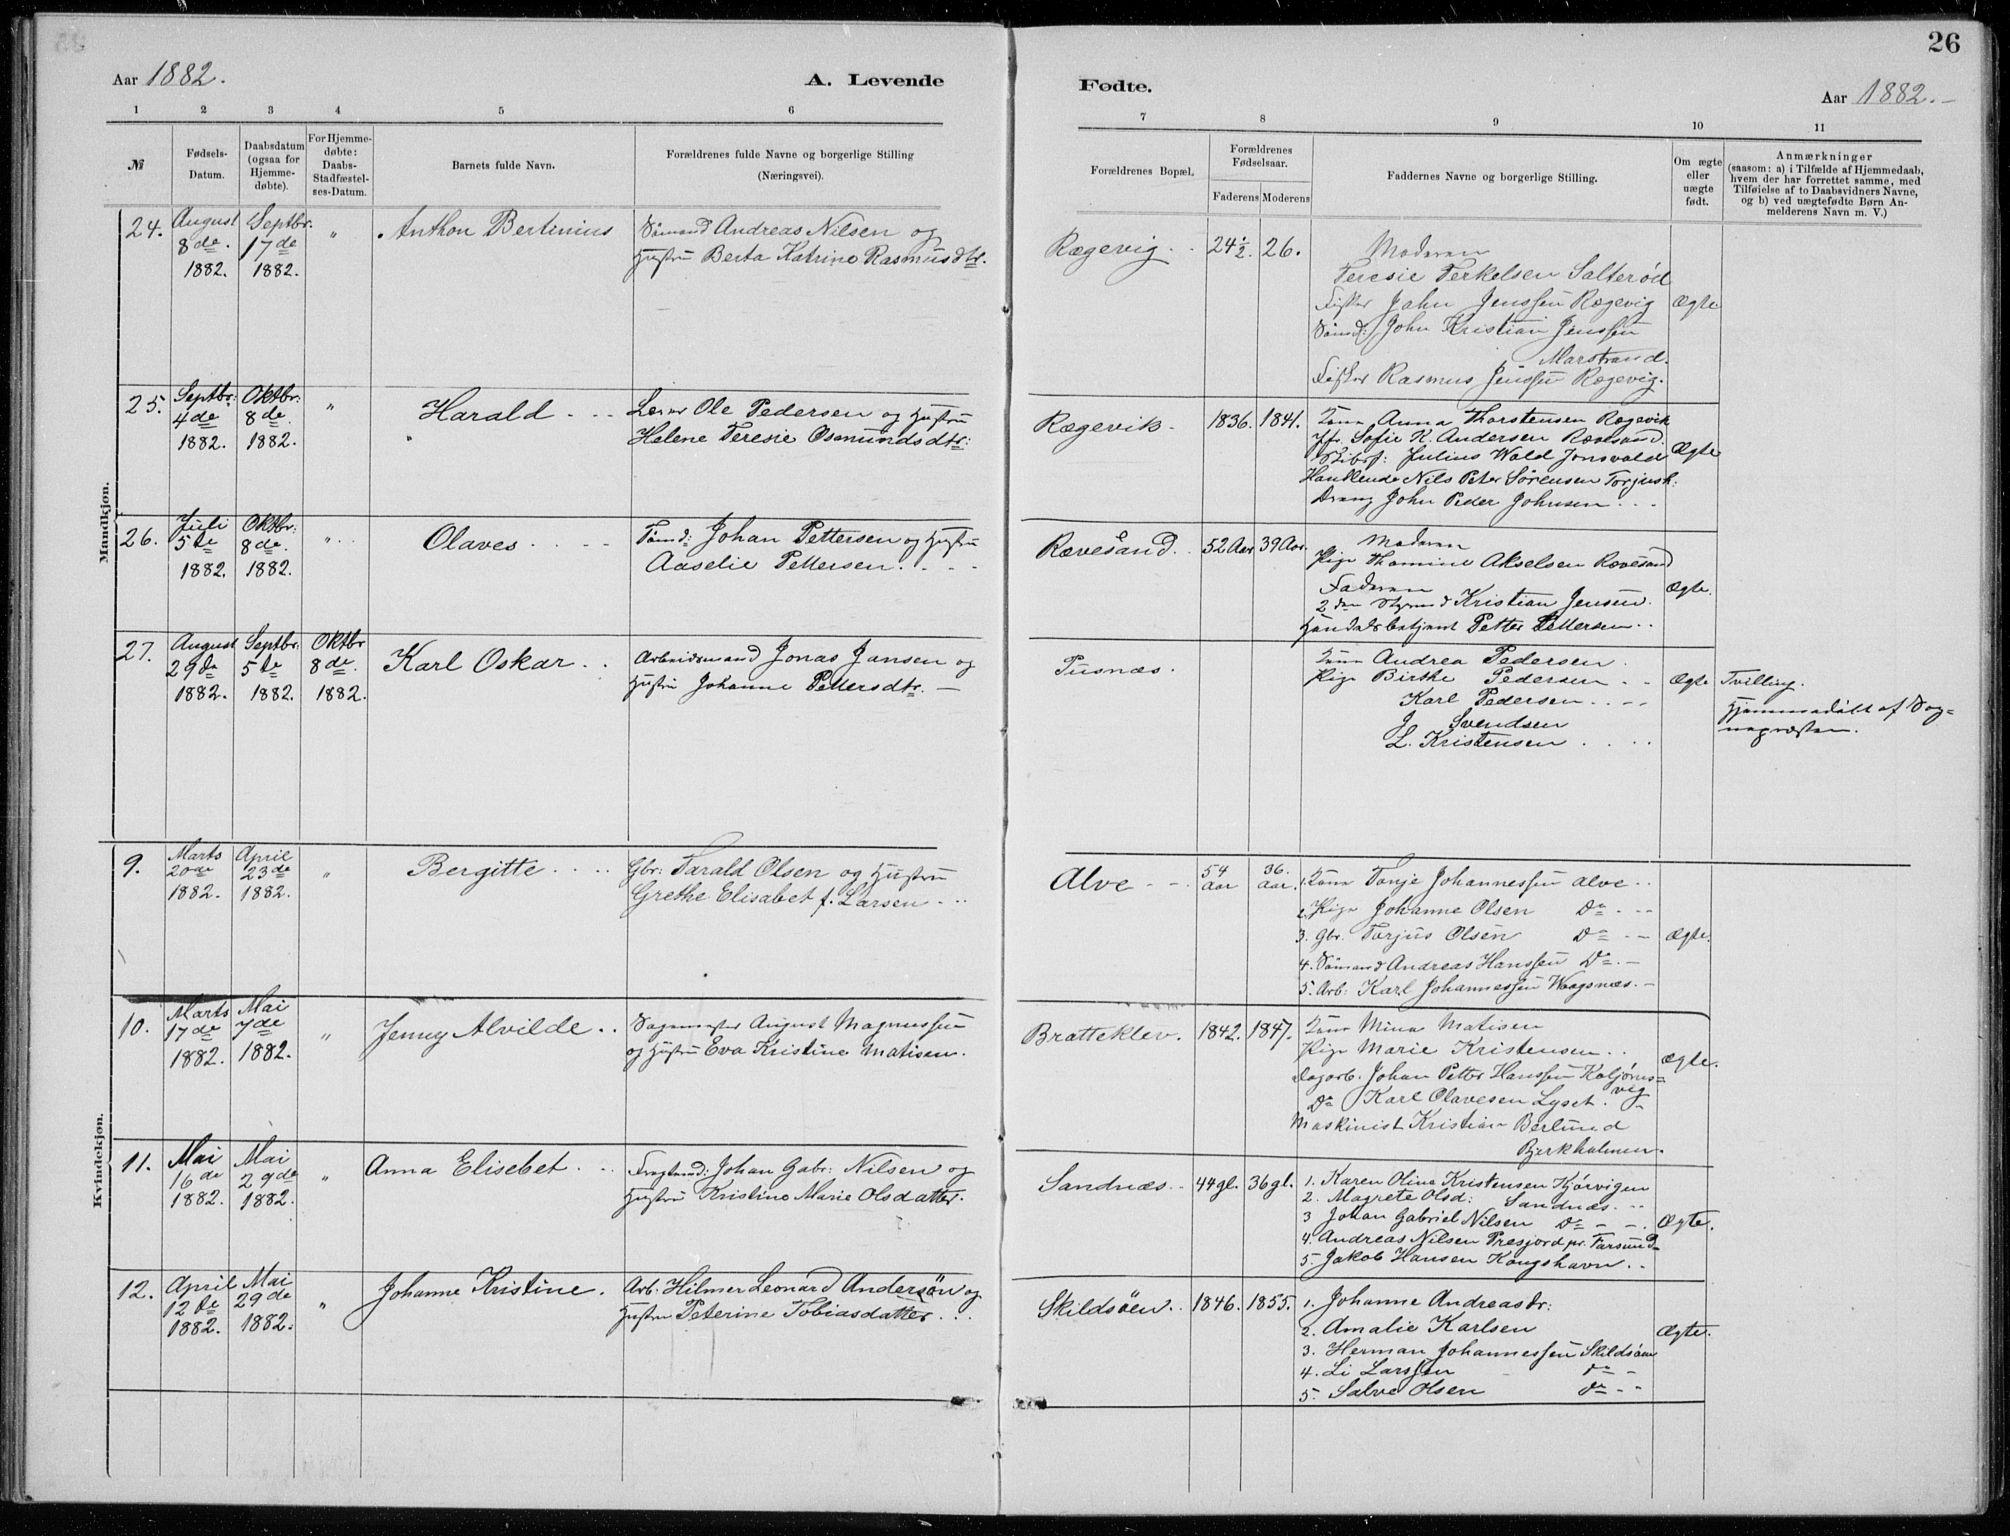 26
Aar 1882.
A. Levende
Fødte.
Aar 1882.-
1 2 3 4 5 6 7 8 9 10 11
№
Fødsels-
Datum.
Daabsdatum
(ogsaa for
Hjemme-
døbte).
For Hjemme-
døbte:
Daabs-
Stadfæstel-
ses-Datum.
Barnets fulde Navn.
Forældrenes fulde Navne og borgerlige Stilling
(Næringsvei).
Forældrenes Bopæl.
Forældrenes
Fødselsaar.
Faderens Moderens
Faddernes Navne og borgerlige Stilling.
Om ægte
eller
uægte
født.
Anmærkninger
(saasom: a) i Tilfælde af Hjemmedaab,
hvem der har forrettet samme, med
Tilføielse af to Daabsvidners Navne,
og b) ved uægtefødte Børn An-
melderens Navn m. V.)
Mandkjøn.
24.
August
8de.
1882.
Septbr.
17de
1882.
"
Anthon Bertinius
Sømand Andreas Nilsen og
Hustru Berta Katrine Rasmusdtr.
Rægevig
24½
26.
Moderen
Teresie Terkelsen Salterød
Fisker John Jenssen Rægevig
Sømd: John Kristian Jenssen
Marstrand.
Fisker Rasmus Jenssen Rægevig.
Ægte
25.
Septbr:
4de
1882.
Oktbr:
8de.
1882.
"
Harald
Lærer Ole Pedersen og Hustru
Helene Teresie Osmundsdtr:
Rægevik
1836.
1841.
Kone Anna Thorstensen Rægevik
Jfr. Sofie K. Andersen Rævesand.
Skibsf: Julius Wold Jonsvold
Handlende Nils Peter Sørensen Torjush:
Dreng John Peder Johnsen
Ægte
26.
Juli
5te
1882.
Oktbr:
8de.
1882.
"
Olaves
Tømd: Johan Pettersen og Hustru
Aaselie Pettersen.
Rævesand.
52 Aar
39 Aar.
Moderen
Pige Thomine Akselsen Rævesand
Faderen
2den Styrmd Kristian Jensen.
Handelsbetjent Petter Pettersen
Ægte.
27.
August
29de
1882.
Septbr.
5te
1882.
Oktbr
8de.
1882.
Karl Oskar
Arbeidsmand Jonas Jansen og
Hustru Johanne Pettersdtr. —
Pusnæs.
Kone Andrea Pedersen.
Pige Birthe Pedersen
Karl Pedersen
J. Svendsen
L. Kristensen
Ægte
Tvilling.
Hjemmedøbt af Sog=
nepræsten.
Kvindekjøn.
9.
Marts
20de
1882.
April
23de
1882.
"
Bergitte
Gbr: Tarald Olsen og Hustru
Grethe Elisabet f. Larsen
Alve
54
Aar
36.
Aar.
1. Kone Tonje Johannessen Alve
2. Pige Johanne Olsen Do
3. Gbr. Torjus Olsen Do
4. Sømand Andreas Hanssen Do.
5. Arb: Karl Johannessen Waagsnæs.
Ægte.
10.
Marts
17de
1882.
Mai
7de
1882.
"
Jenny Alvilde
Sagmester August Magnussen
og Hustru Eva Kristine Matisen.
Bratteklev.
1842.
1847.
Kone Mina Matisen
Pige Marie Kristensen
Dagarb. Johan Petter Hanssen Koljøns=
vig
Do Karl Olavesen Lyset.
Maskinist Kristian Berlund
Bjerkholmen.
Ægte.
11.
Mai
16de
1882.
Mai
29de
1882.
"
Anna Elisebet
Johan Gabr: Nilsen og
Hustru Kristine Marie Olsdatter.
Sandnæs
44 gl.
36 gl.
1. Karen Olina Kristensen Kjørvigen
2. Magrete Olsd: Sandnæs.
3 Johan Gabriel Nilsen Do
4. Andreas Nilsen Presjord pr. Farsund
5. Jakob Hansen Kongshavn
Ægte.
12.
April
12te
1882.
Mai
29de
1882.
"
Johanne Kristine.
Arb: Hilmer Leonard Andersøn og
Hustru Peterine Tobiasdatter
Skildsøen
1846.
1855.
1. Johanne Andreasdr:
2. Amalie Karlsen
3. Herman Johannessen Skildsøen
4. Li Larssen do
5. Salve Olsen do
Ægte.